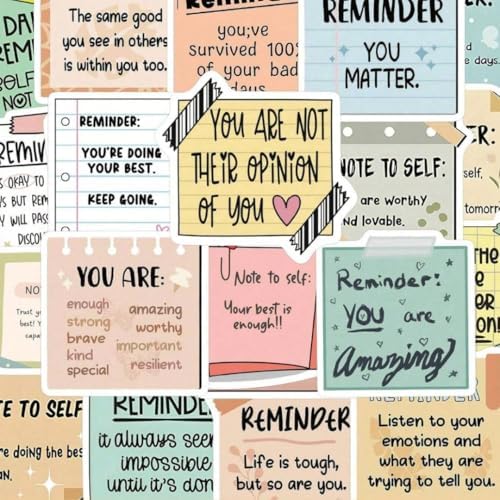 DA
REM
The same good
you see in others
is within you too.
Reminder
you;ve
survived 100
of your bad
days
REMINDER
YOU
MATTER.
days.
OLF
NOT
REMIN
REMINDER:
YOU'RE DOING
YOUR BEST.
KEEP GOING.
YOU ARE NOT
THEIR OPINION
OF YOU
NOTE TO SELF:
are worthy
nd lovable.
ER:
self,
tomorr
S OKAY TO
YS BUT REM
Y WILL PAS
DISCO
YOU ARE:
enough
strong
brave
kind
special
amazing
worthy
important
resilient
Note to self:
Your best is
enough!!
Reminder:
YOU are
Amazing
NO
Trust yo
best! Y
capa
THE
ER
ION
TE TO SELF
re doing the bes
an.
REMINDE
it always see
impossible
until it's don
REMINDER
Life is tough,
but so are you.
REMINDER
Listen to your
emotions and
what they are
trying to tell you.